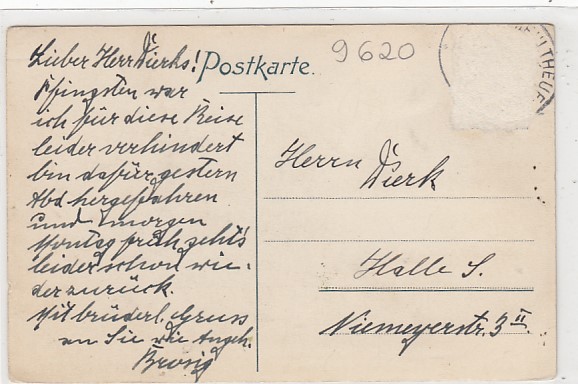 Lieber Herr Dierks!
Pfingsten war
ich für diese Reise
leider verhindert
bin dafür gestern
Abd hergefahren
und morgen
Montag früh geht's
leider schon wie-
der zurück.
Mit brüderl. Gruss
an Sie wie Angeh.
Brosig
Postkarte.
9620
Herrn Dierk
Halle S.
Niemeyerstr. 3 II.